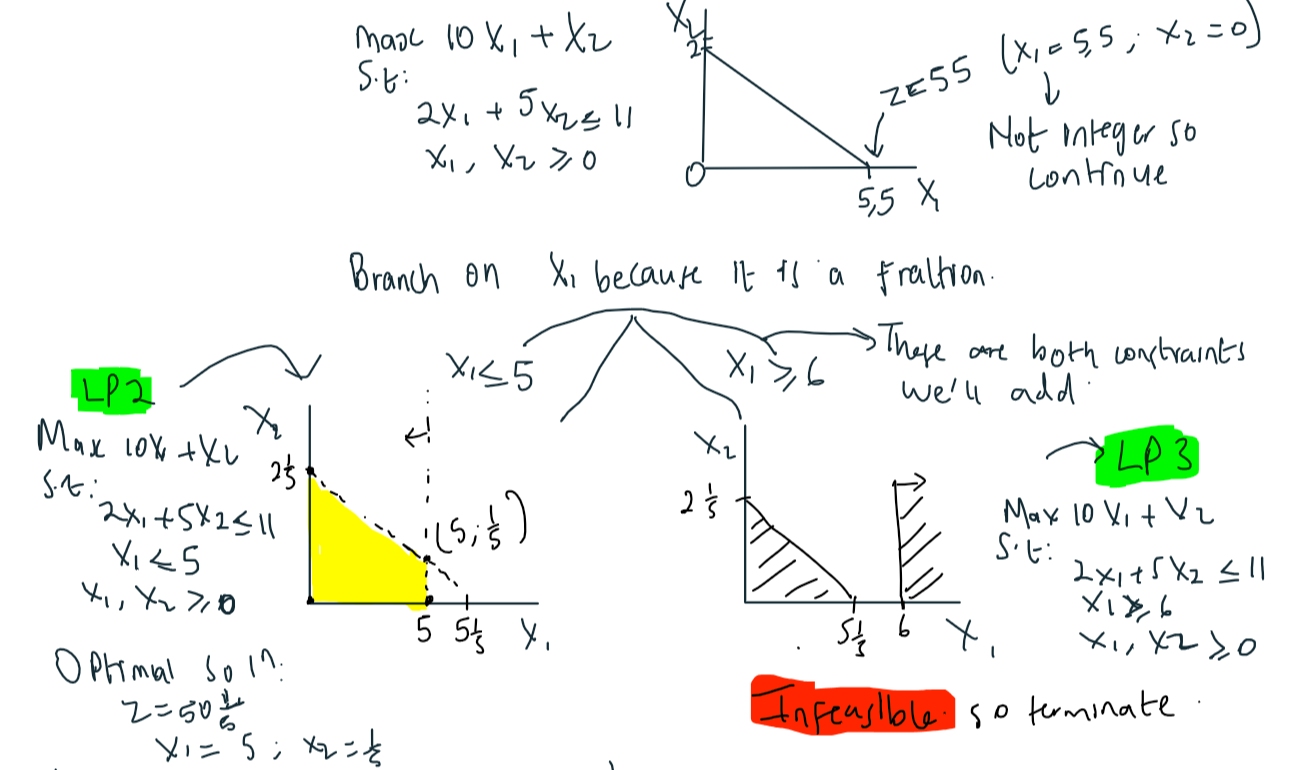 max 10 X₁ + X₂
S.t:
2X₁ + 5X₂ ≤ 11
X₁, X₂ ≥ 0
X₂
2
0
5,5 X₁
Z=55 (X₁=5,5; X₂=0)
↓
Not integer so
continue
Branch on X₁ because it is a fraction.
X₁≤5
X₁≥6
These are both constraints
we'll add
LP2
Max 10X₁ + X₂
S.t:
2X₁+5X₂≤11
X₁≤5
X₁, X₂≥0
X₂
2 1/5
(5; 1/5)
5 5 1/5 X₁
Optimal soln:
Z=50 1/5
X₁= 5; X₂=1/5
X₂
2 1/5
5 1/5 6 X₁
LP3
Max 10 X₁ + X₂
S.t:
2X₁+5X₂ ≤11
X₁≥6
X₁, X₂≥0
Infeasible so terminate.